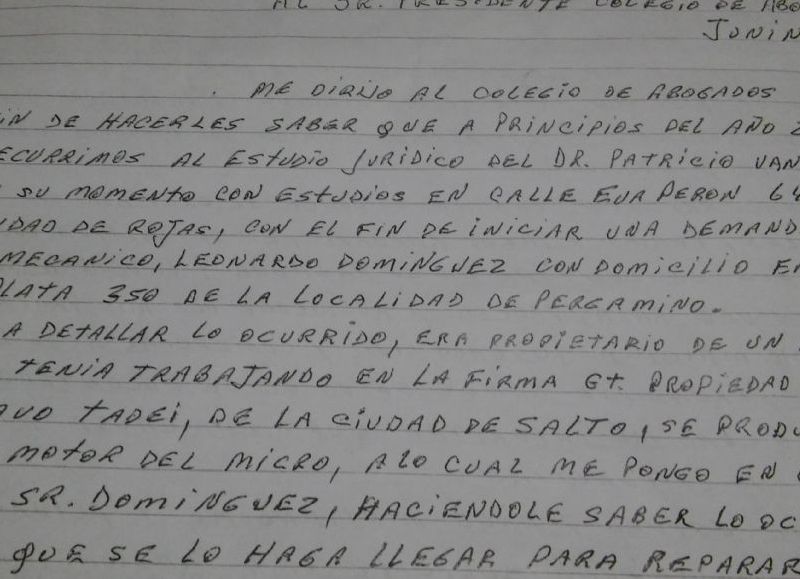 AL SR. PRESIDENTE COLEGIO DE ABO
JUNIN
ME DIRIJO AL COLEGIO DE ABOGADOS
IN DE HACERLES SABER QUE A PRINCIPIOS DEL AÑO 2
ECURRIMOS AL ESTUDIO JURIDICO DEL DR. PATRICIO VAN
SU MOMENTO CON ESTUDIOS EN CALLE EVA PERON 64
UDAD DE ROJAS, CON EL FIN DE INICIAR UNA DEMAND
MECANICO, LEONARDO DOMINGUEZ CON DOMICILIO EN
LATA 350 DE LA LOCALIDAD DE PERGAMINO.
A DETALLAR LO OCURRIDO, ERA PROPIETARIO DE UN
TENIA TRABAJANDO EN LA FIRMA GT. PROPIEDAD
AVO TADEI, DE LA CIUDAD DE SALTO, SE PRODU
MOTOR DEL MICRO, A LO CUAL ME PONGO EN
SR. DOMINGUEZ, HACIENDOLE SABER LO OC
QUE SE LO HAGA LLEGAR PARA REPARAR